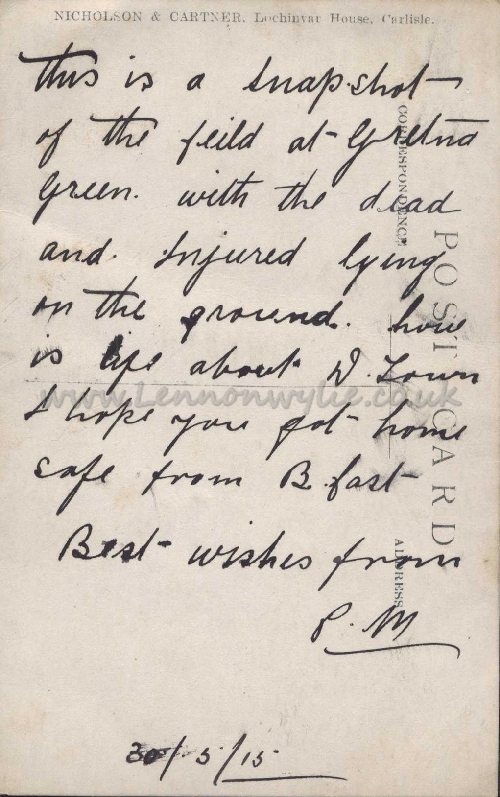 NICHOLSON & CARTNER, Lochinvar House, Carlisle.
This is a snapshot
of the feild at Gretna
Green. with the dead
and Injured lying
on the ground. how
is life about D. Town
I hope you got home
safe from B.fast
Best wishes from
P. M
30/5/15
POST CARD
CORRESPONDENCE
ADDRESS
www.Lennonwylie.co.uk